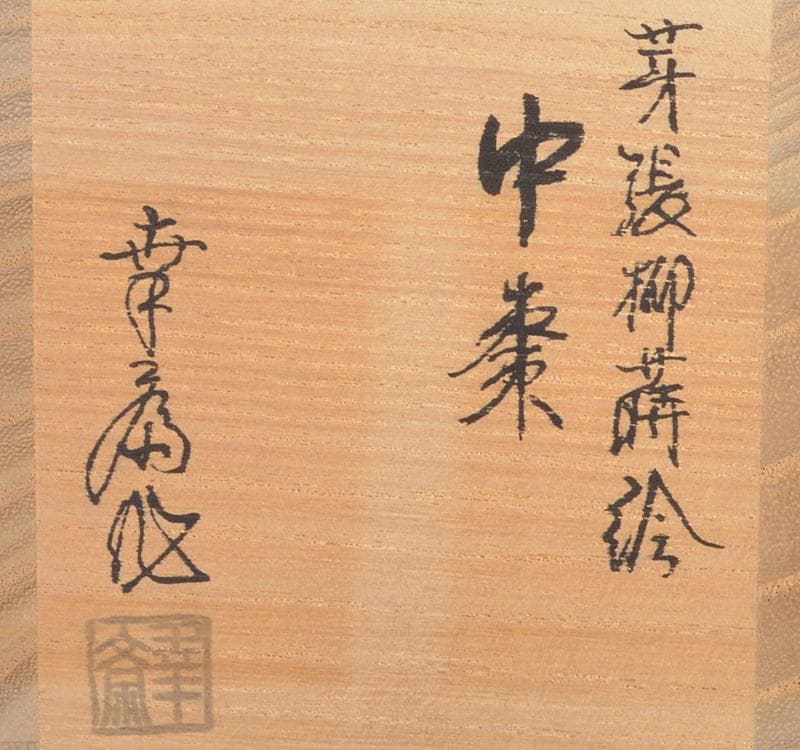 芽張柳蒔絵
中棗
幸斎作
幸斎